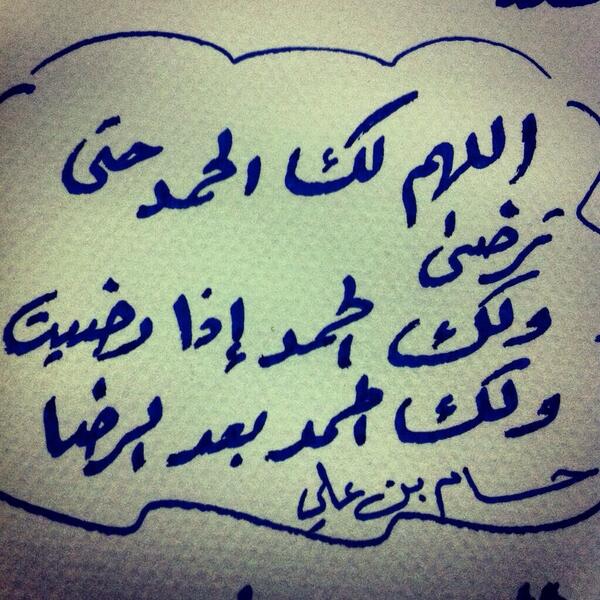 اللهم لك الحمد حتى
ترضى
ولك الحمد إذا رضيت
ولك الحمد بعد الرضا
حسام بن علي